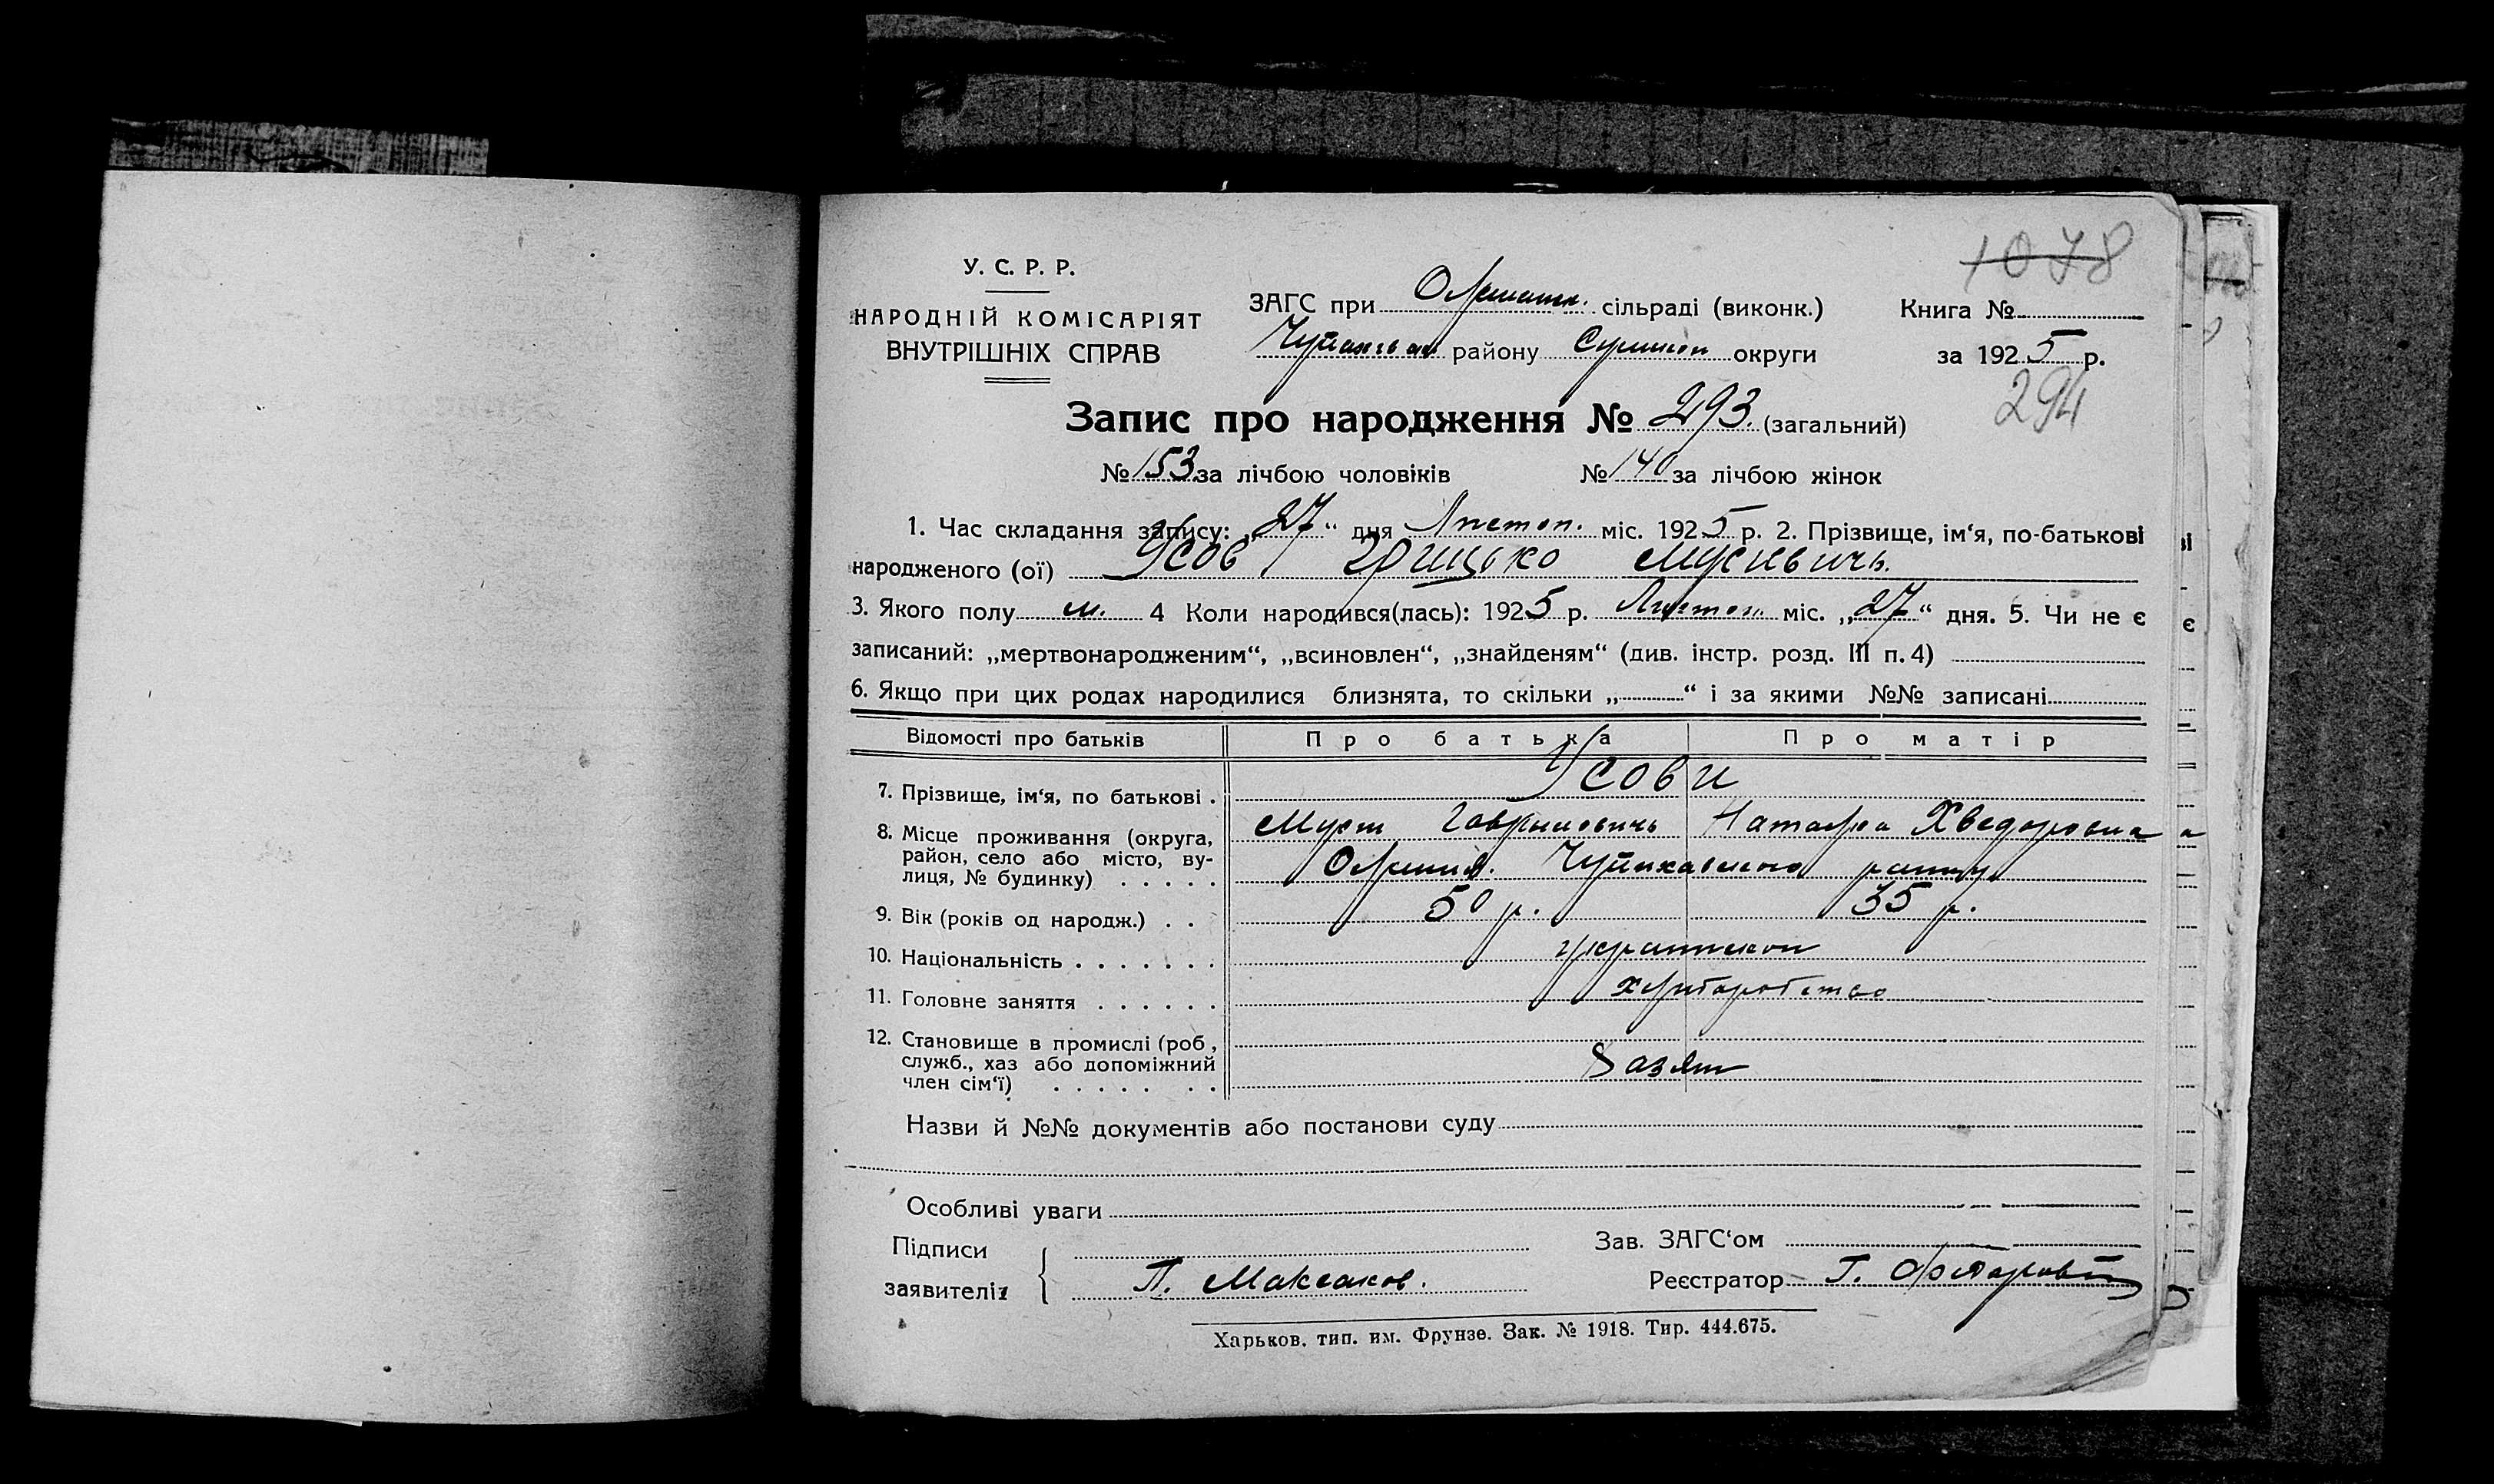 1078
У. С. Р. Р.
НАРОДНІЙ КОМІСАРІЯТ
ВНУТРІШНІХ СПРАВ
ЗАГС при сільраді (виконк.)
району Сумської округи
Книга №
за 1925 р.
294
Запис про народження № 293. (загальний)
№ 153 за лічбою чоловіків № 140 за лічбою жінок
1. Час складання запису: „27“ дня Листоп. міс. 1925 р. 2. Прізвище, ім‘я, по-батькові
народженого (ої) Усов Грицько Мусієвичь.
3. Якого полу м. 4 Коли народився(лась): 1925 р. Листоп. міс. „27“ дня. 5. Чи не є
записаний: „мертвонародженим“, „всиновлен“, „знайденям“ (див. інстр. розд. III п. 4)
6. Якщо при цих родах народилися близнята, то скільки „ “ і за якими №№ записані
Відомості про батьків Про батька Про матір
7. Прізвище, ім‘я, по батькові . Усови
Мусій Гаврилович Наталка Хведоровна
8. Місце проживання (округа,
район, село або місто, ву-
лиця, № будинку) . . . . .
9. Вік (років од народж.) . . 50 р. 35 р.
10. Національність . . . . . . .
11. Головне заняття . . . . . . хліборобство
12. Становище в промислі (роб ,
служб., хаз або допоміжний
член сім‘ї) . . . . . . . Хазяїн
Назви й №№ документів або постанови суду
Особливі уваги
Підписи
заявителів П. Максаков.
Зав. ЗАГС‘ом
Реєстратор Г.
Харьков, тип. им. Фрунзе. Зак. № 1918. Тир. 444.675.